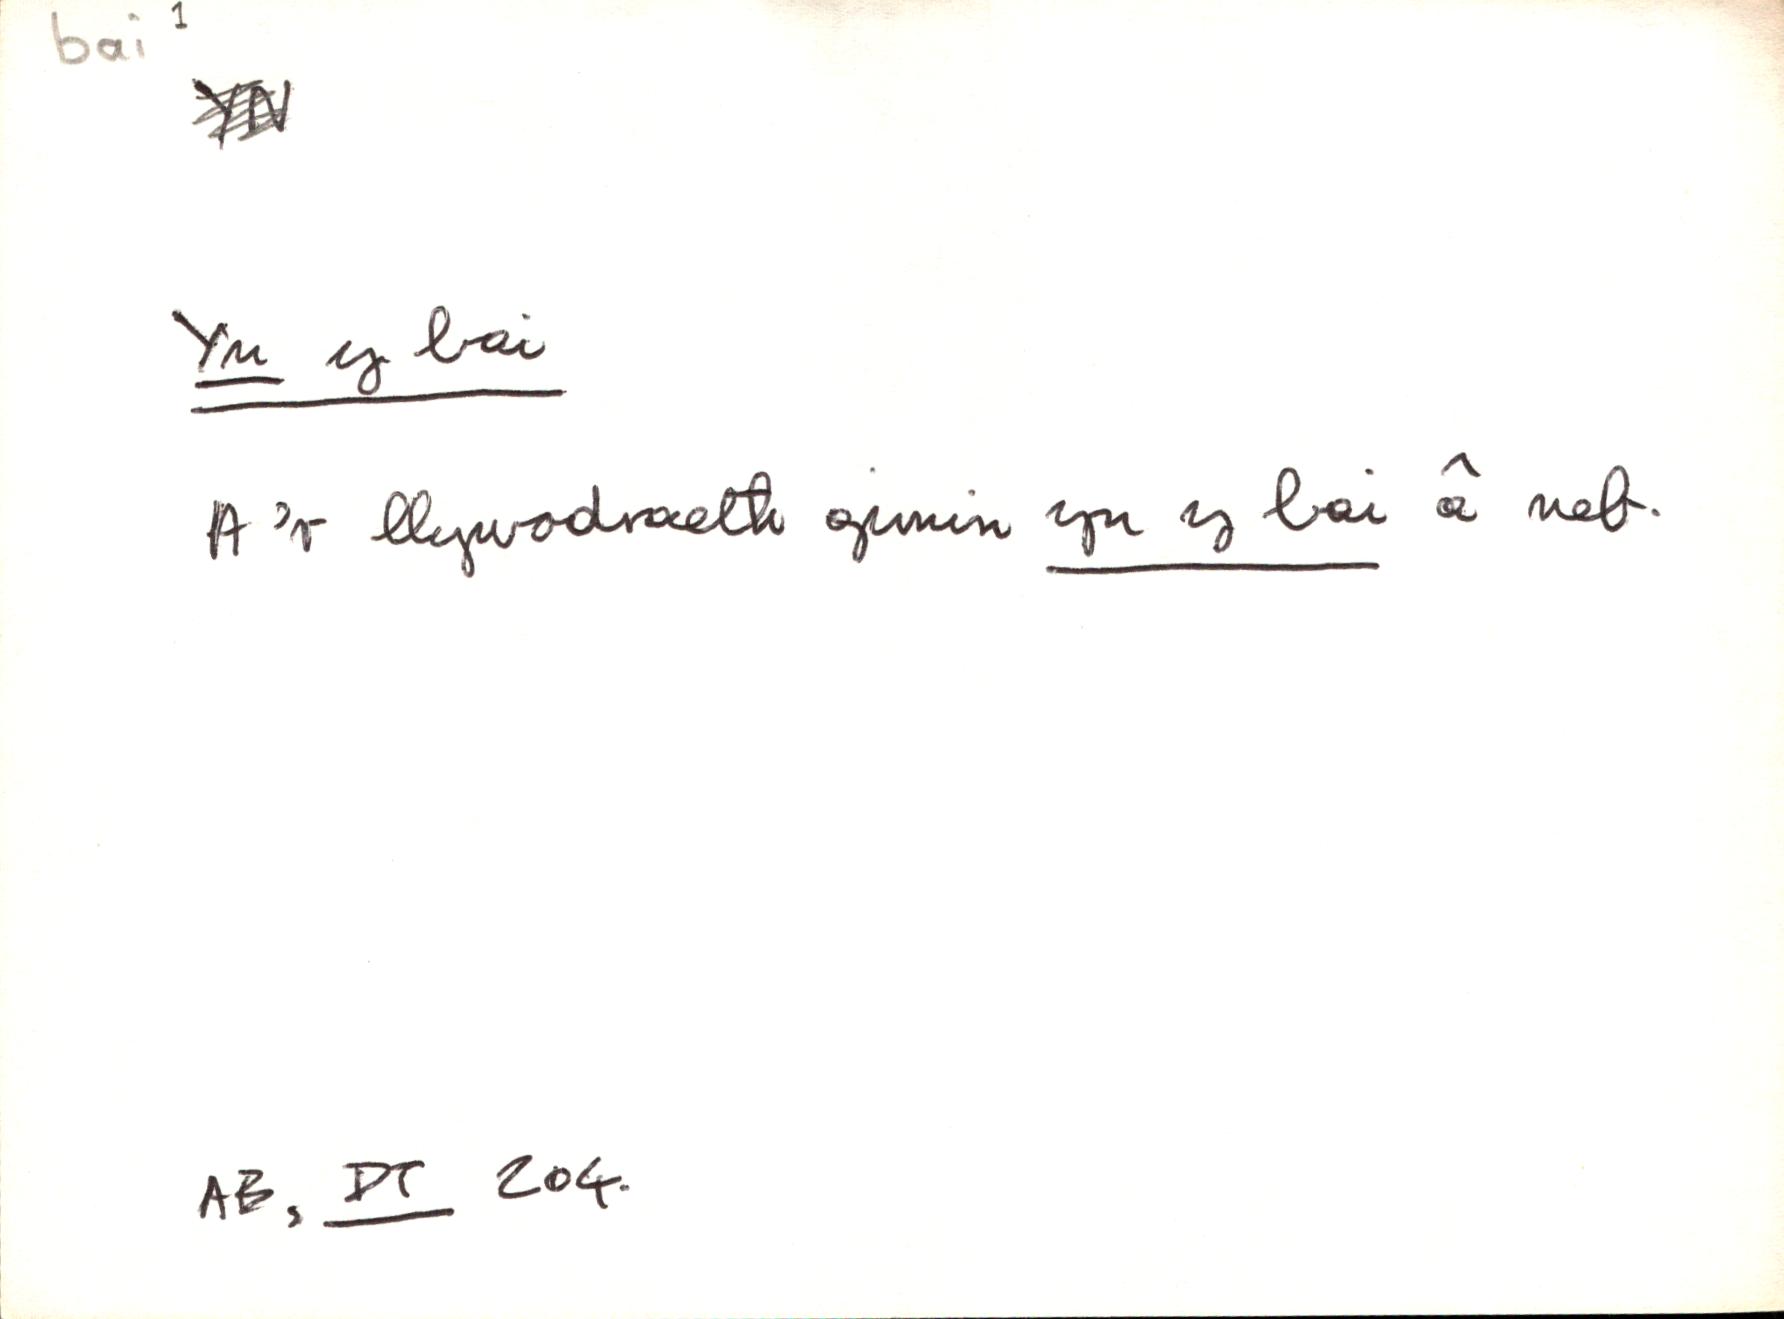 bai ¹
YN
Yn y bai
A'r llywodraeth gymin yn y bai â neb.
AB, DT 204.